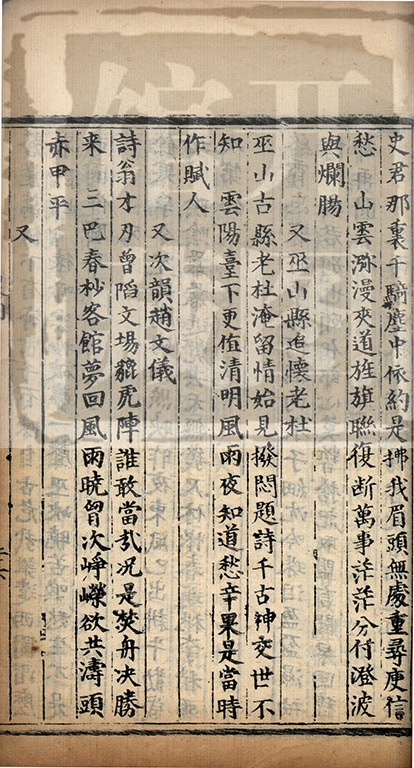 史君那裏千騎塵中依約是拂我眉頭無處重尋庾信
愁 山雲瀰漫夾道旌旗聯復斷萬事茫茫分付澄波
與爛腸
又巫山縣追懷老杜
巫山古縣老杜淹留情始見撥悶題詩千古神交世不
知 雲陽臺下更值清明風雨夜知道愁辛果是當時
作賦人
又次韻趙文儀
詩翁才刃曾陷文場貔虎陣誰敢當哉况是焚舟决勝
来 三巴春杪客館夢回風雨曉胷次崢嶸欲共濤頭
赤甲平
又